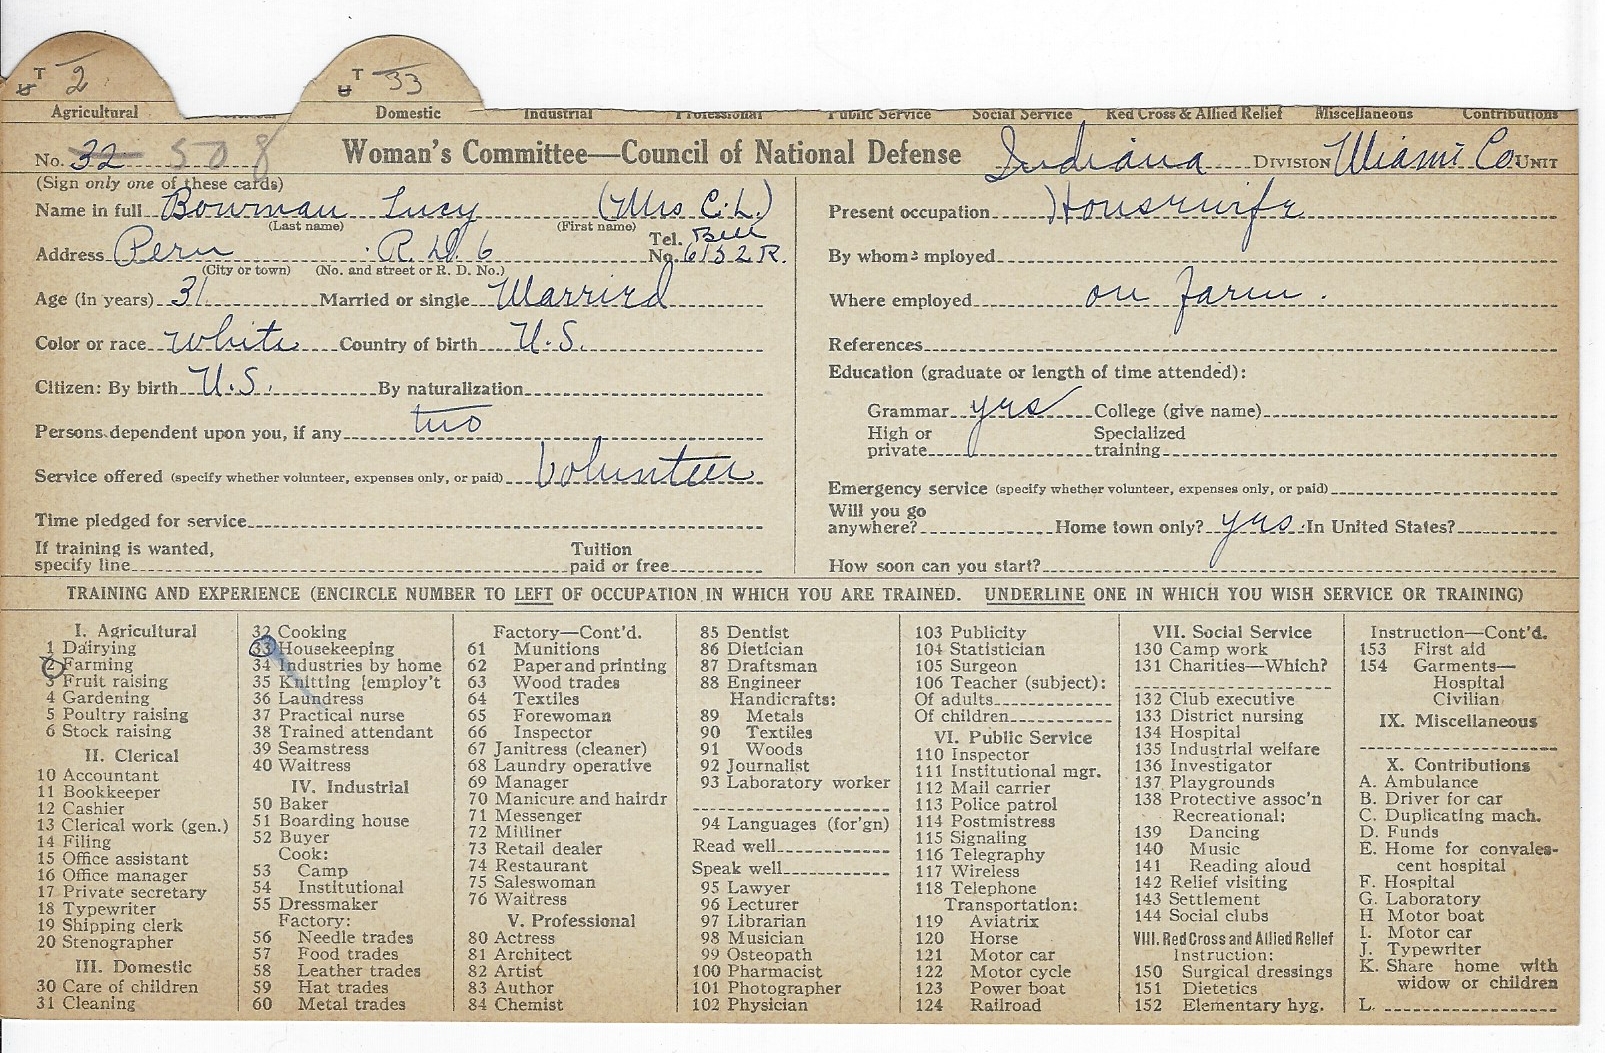 T 2 T 33
U U
Agricultural Domestic Industrial Professional Public Service Social Service Red Cross & Allied Relief Miscellaneous Contributions
No. 32 508 Woman's Committee—Council of National Defense Indiana DIVISION Miami Co UNIT
(Sign only one of these cards)
Name in full Bowman Lucy (Mrs C.L.)
(Last name) (First name)
Address Peru R.D. 6 Tel. No. Bell 6132R.
(City or town) (No. and street or R. D. No.)
Age (in years) 31 Married or single Married
Color or race White Country of birth U.S.
Citizen: By birth U.S. By naturalization
Persons dependent upon you, if any two
Service offered (specify whether volunteer, expenses only, or paid) Volunteer
Time pledged for service
If training is wanted, specify line Tuition paid or free
Present occupation Housewife
By whom employed
Where employed on farm.
References
Education (graduate or length of time attended):
Grammar yes College (give name)
High or private Specialized training
Emergency service (specify whether volunteer, expenses only, or paid)
Will you go anywhere? Home town only? yes In United States?
How soon can you start?
TRAINING AND EXPERIENCE (ENCIRCLE NUMBER TO LEFT OF OCCUPATION IN WHICH YOU ARE TRAINED. UNDERLINE ONE IN WHICH YOU WISH SERVICE OR TRAINING)
I. Agricultural
1 Dairying
2 Farming
3 Fruit raising
4 Gardening
5 Poultry raising
6 Stock raising
II. Clerical
10 Accountant
11 Bookkeeper
12 Cashier
13 Clerical work (gen.)
14 Filing
15 Office assistant
16 Office manager
17 Private secretary
18 Typewriter
19 Shipping clerk
20 Stenographer
III. Domestic
30 Care of children
31 Cleaning
32 Cooking
33 Housekeeping
34 Industries by home
35 Knitting [employ't
36 Laundress
37 Practical nurse
38 Trained attendant
39 Seamstress
40 Waitress
IV. Industrial
50 Baker
51 Boarding house
52 Buyer
Cook:
53 Camp
54 Institutional
55 Dressmaker
Factory:
56 Needle trades
57 Food trades
58 Leather trades
59 Hat trades
60 Metal trades
Factory—Cont'd.
61 Munitions
62 Paper and printing
63 Wood trades
64 Textiles
65 Forewoman
66 Inspector
67 Janitress (cleaner)
68 Laundry operative
69 Manager
70 Manicure and hairdr
71 Messenger
72 Milliner
73 Retail dealer
74 Restaurant
75 Saleswoman
76 Waitress
V. Professional
80 Actress
81 Architect
82 Artist
83 Author
84 Chemist
85 Dentist
86 Dietician
87 Draftsman
88 Engineer
Handicrafts:
89 Metals
90 Textiles
91 Woods
92 Journalist
93 Laboratory worker
94 Languages (for'gn)
Read well
Speak well
95 Lawyer
96 Lecturer
97 Librarian
98 Musician
99 Osteopath
100 Pharmacist
101 Photographer
102 Physician
103 Publicity
104 Statistician
105 Surgeon
106 Teacher (subject):
Of adults
Of children
VI. Public Service
110 Inspector
111 Institutional mgr.
112 Mail carrier
113 Police patrol
114 Postmistress
115 Signaling
116 Telegraphy
117 Wireless
118 Telephone
Transportation:
119 Aviatrix
120 Horse
121 Motor car
122 Motor cycle
123 Power boat
124 Railroad
VII. Social Service
130 Camp work
131 Charities—Which?
132 Club executive
133 District nursing
134 Hospital
135 Industrial welfare
136 Investigator
137 Playgrounds
138 Protective assoc'n
Recreational:
139 Dancing
140 Music
141 Reading aloud
142 Relief visiting
143 Settlement
144 Social clubs
VIII. Red Cross and Allied Relief
Instruction:
150 Surgical dressings
151 Dietetics
152 Elementary hyg.
Instruction—Cont'd.
153 First aid
154 Garments—
Hospital
Civilian
IX. Miscellaneous
X. Contributions
A. Ambulance
B. Driver for car
C. Duplicating mach.
D. Funds
E. Home for convales-
cent hospital
F. Hospital
G. Laboratory
H Motor boat
I. Motor car
J. Typewriter
K. Share home with
widow or children
L.